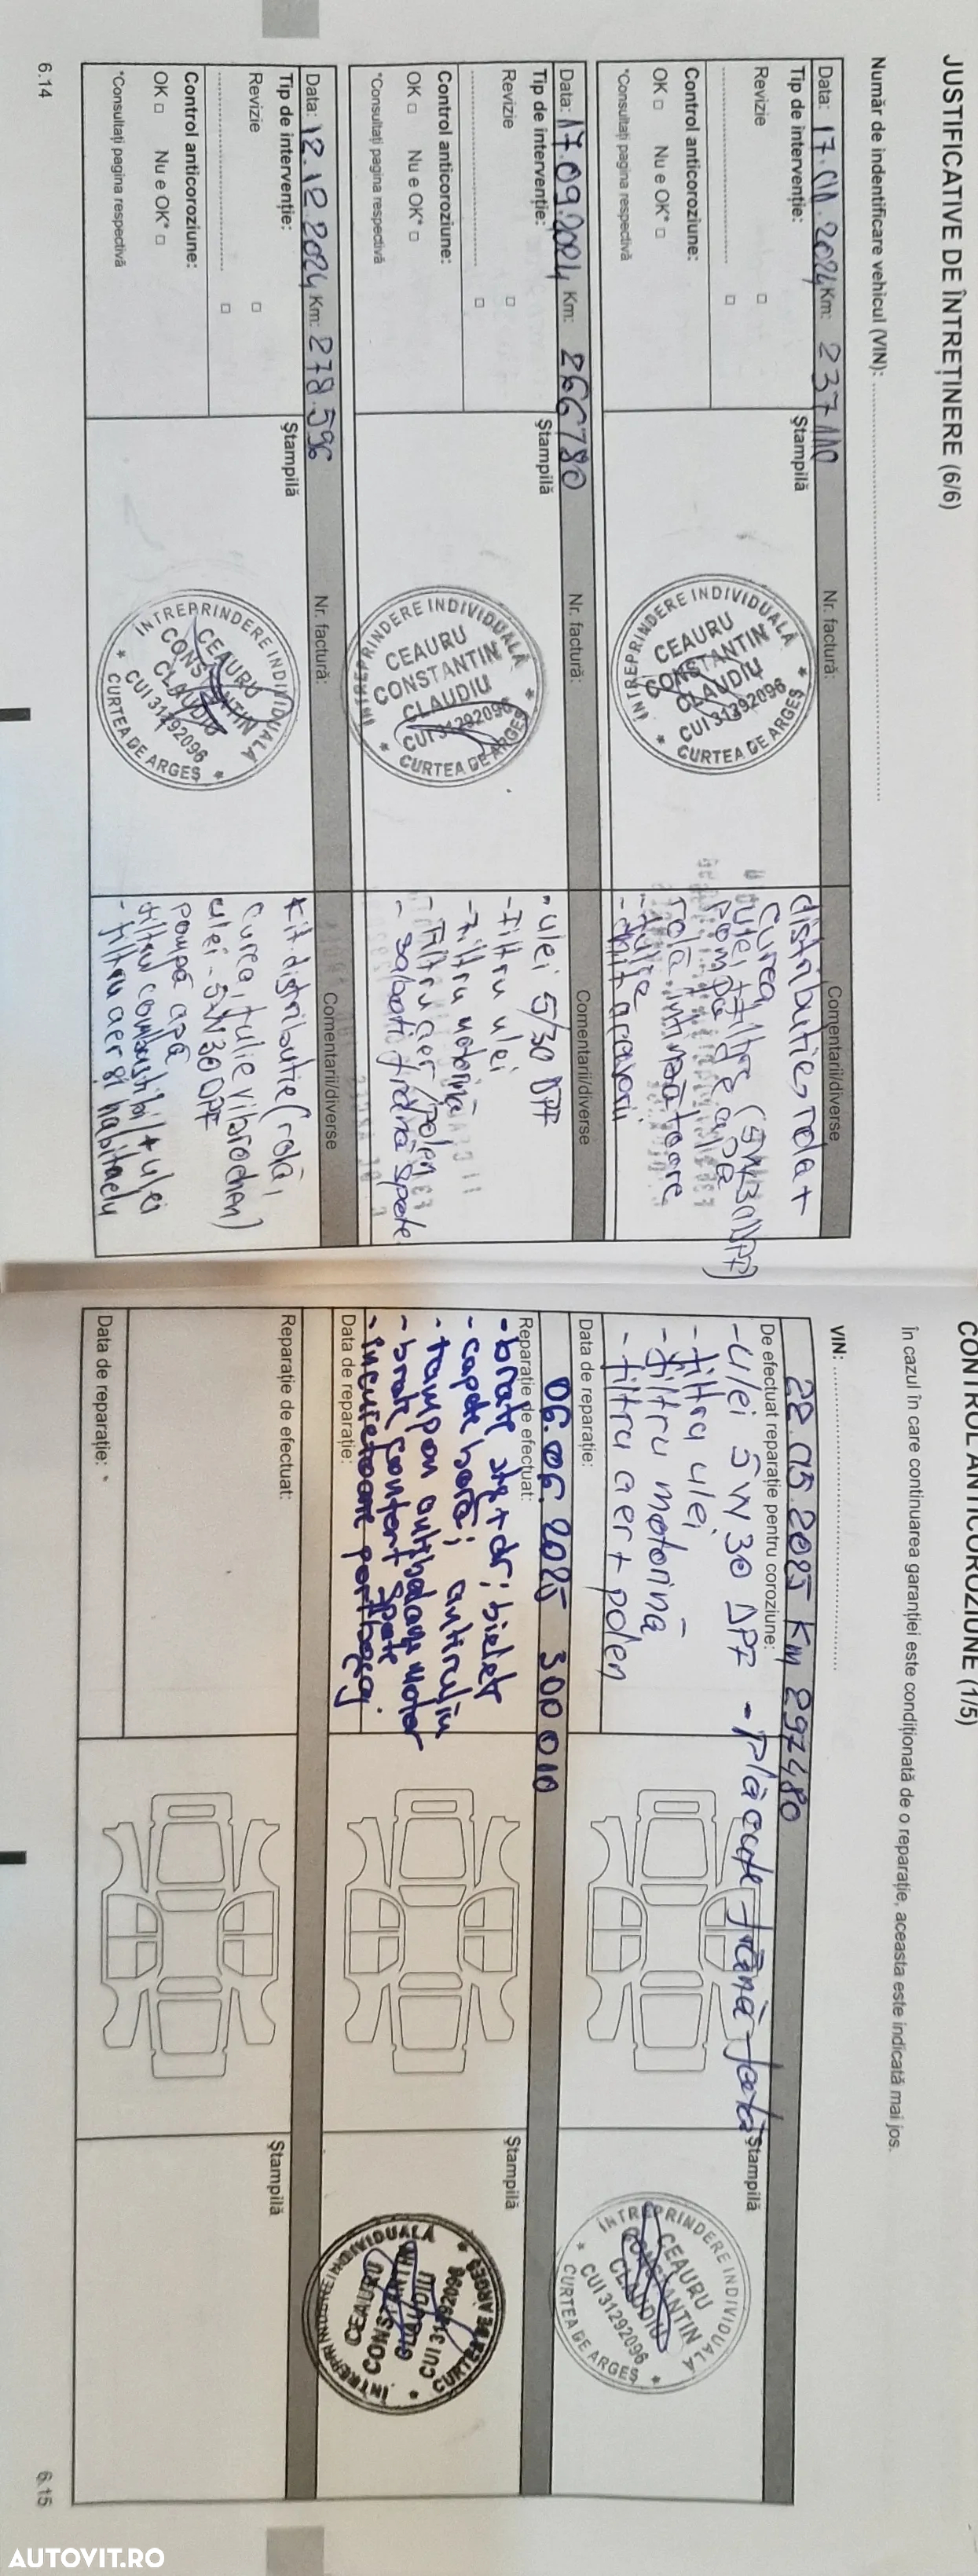 JUSTIFICATIVE DE ÎNTREȚINERE (6/6)
Număr de indentificare vehicul (VIN):
Data: 17.01.2024 Km: 237110
Nr. factură:
Comentarii/diverse
Tip de intervenție:
Revizie
Control anticoroziune:
OK Nu e OK*
*Consultați pagina respectivă
Ștampilă
ÎNTREPRINDERE INDIVIDUALĂ
CEAURU
CONSTANTIN
CLAUDIU
CUI 31292096
CURTEA DE ARGEȘ
distributie, rola +
curea
ulei + filtre (5W30 DPF)
pompa apa
rola intinzatoare
- fulie
Data: 17.09.2024 Km: 266780
Nr. factură:
Comentarii/diverse
Tip de intervenție:
Revizie
Control anticoroziune:
OK Nu e OK*
*Consultați pagina respectivă
Ștampilă
ÎNTREPRINDERE INDIVIDUALĂ
CEAURU
CONSTANTIN
CLAUDIU
CUI 31292096
CURTEA DE ARGEȘ
- ulei 5/30 DPF
- filtru ulei
- filtru motorină
- filtru aer/polen
- saboti frână spate
Data: 12.12.2024 Km: 278.596
Nr. factură:
Comentarii/diverse
Tip de intervenție:
Revizie
Control anticoroziune:
OK Nu e OK*
*Consultați pagina respectivă
Ștampilă
ÎNTREPRINDERE INDIVIDUALĂ
CEAURU
CONSTANTIN
CLAUDIU
CUI 31292096
CURTEA DE ARGEȘ
Kit distributie (rolă,
curea, fulie vibrochen)
ulei - 5W30 DPF
pompă apă
filtru combustibil + ulei
- filtru aer si habitaclu
6.14
CONTROL ANTICOROZIUNE (1/5)
În cazul în care continuarea garanției este condiționată de o reparație, aceasta este indicată mai jos.
VIN:
22.05.2025 Km 297480
De efectuat reparație pentru coroziune:
- ulei 5W30 DPF - Plăcute frână fată
- filtru ulei
- filtru motorină
- filtru aer + polen
Data de reparație:
Ștampilă
ÎNTREPRINDERE INDIVIDUALĂ
CEAURU
CONSTANTIN
CLAUDIU
CUI 31292096
CURTEA DE ARGEȘ
06.06.2025 300 010
Reparație de efectuat:
- brate stg + dr; bielete
- capete bară; antiruliu
- tampon antibalans motor
- brate confort spate
Data de reparație:
Ștampilă
ÎNTREPRINDERE INDIVIDUALĂ
CEAURU
CONSTANTIN
CLAUDIU
CUI 31292096
CURTEA DE ARGEȘ
Reparație de efectuat:
Data de reparație:
Ștampilă
6.15
AUTOVIT.RO